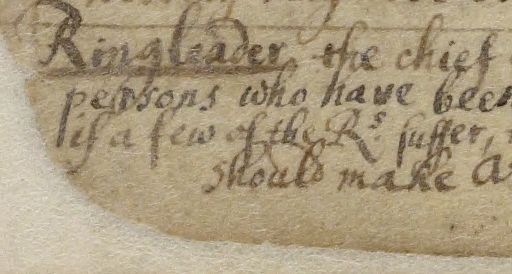 Ringleader, the chief
persons who have been
if a few of the R.s suffer,
should make